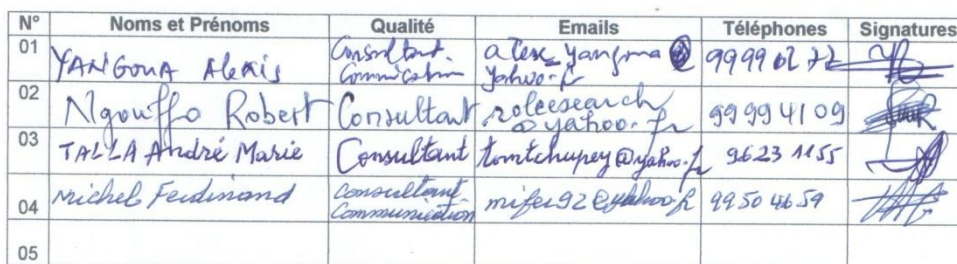 N° Noms et Prénoms Qualité Emails Téléphones Signatures
01 YANGOUA Alexis Consultant Communication alexe_yangoua@yahoo.fr 9999 62 72
02 Ngouffo Robert Consultant rolcesearch@yahoo.fr 99 99 41 09
03 TALLA André Marie Consultant tomtchupey@yahoo.fr 9623 1155
04 Michel Ferdinand Consultant Communication mifer92@yahoo.fr 9950 4659
05